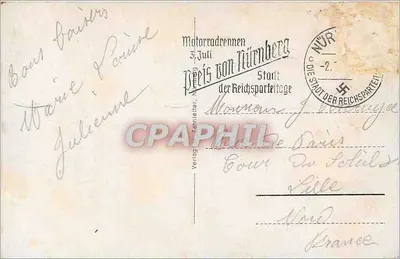 Bons Baisers
Marie Louise
Julienne
Motorradrennen
3. Juli
Preis von Nürnberg
Stadt
der Reichsparteitage
NÜR
-2.
DIE STADT DER REICHSPARTEI
Monsieur J
de Paris
Cour Du Soleil
Lille
Nord
France
Verlag
CPAPHIL